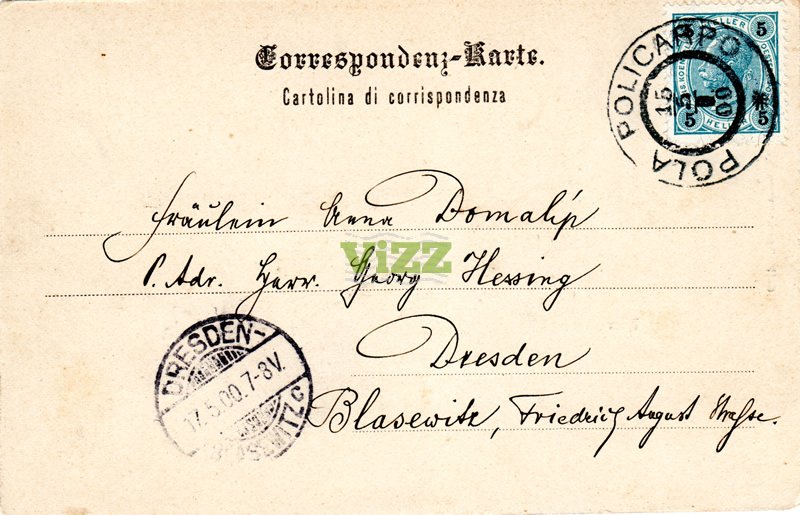 Correspondenz-Karte.
Cartolina di corrispondenza
5 HELLER 5
5 HELLER 5
POLA POLICARPO
15 5 00
Fräulein Anna Domalip
P. Adr. Herr. Georg Hessing
ViZZ
Dresden
Blasewitz, Friedrich August Straße.
DRESDEN-
17.5.00.7-8V.